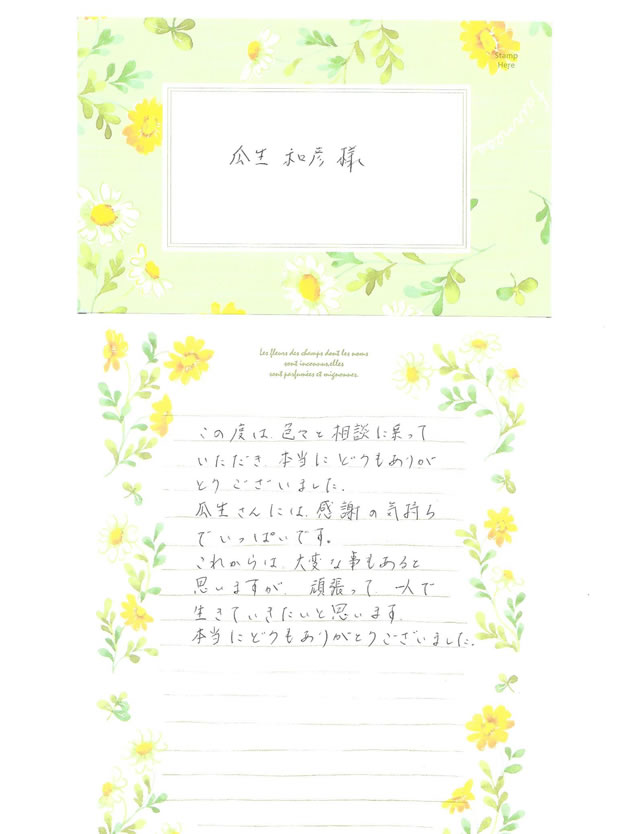 Stamp
Here
瓜生 和彦 様
Les fleurs des champs dont les noms
sont inconnuxelles
sont parfumées et mignonnes.
この度は、色々と相談に乗って
いただき、本当にどうもありが
とうございました。
瓜生さんには、感謝の気持ち
でいっぱいです。
これからは、大変な事もあると
思いますが、頑張って一人で
生きていきたいと思います。
本当にどうもありがとうございました。